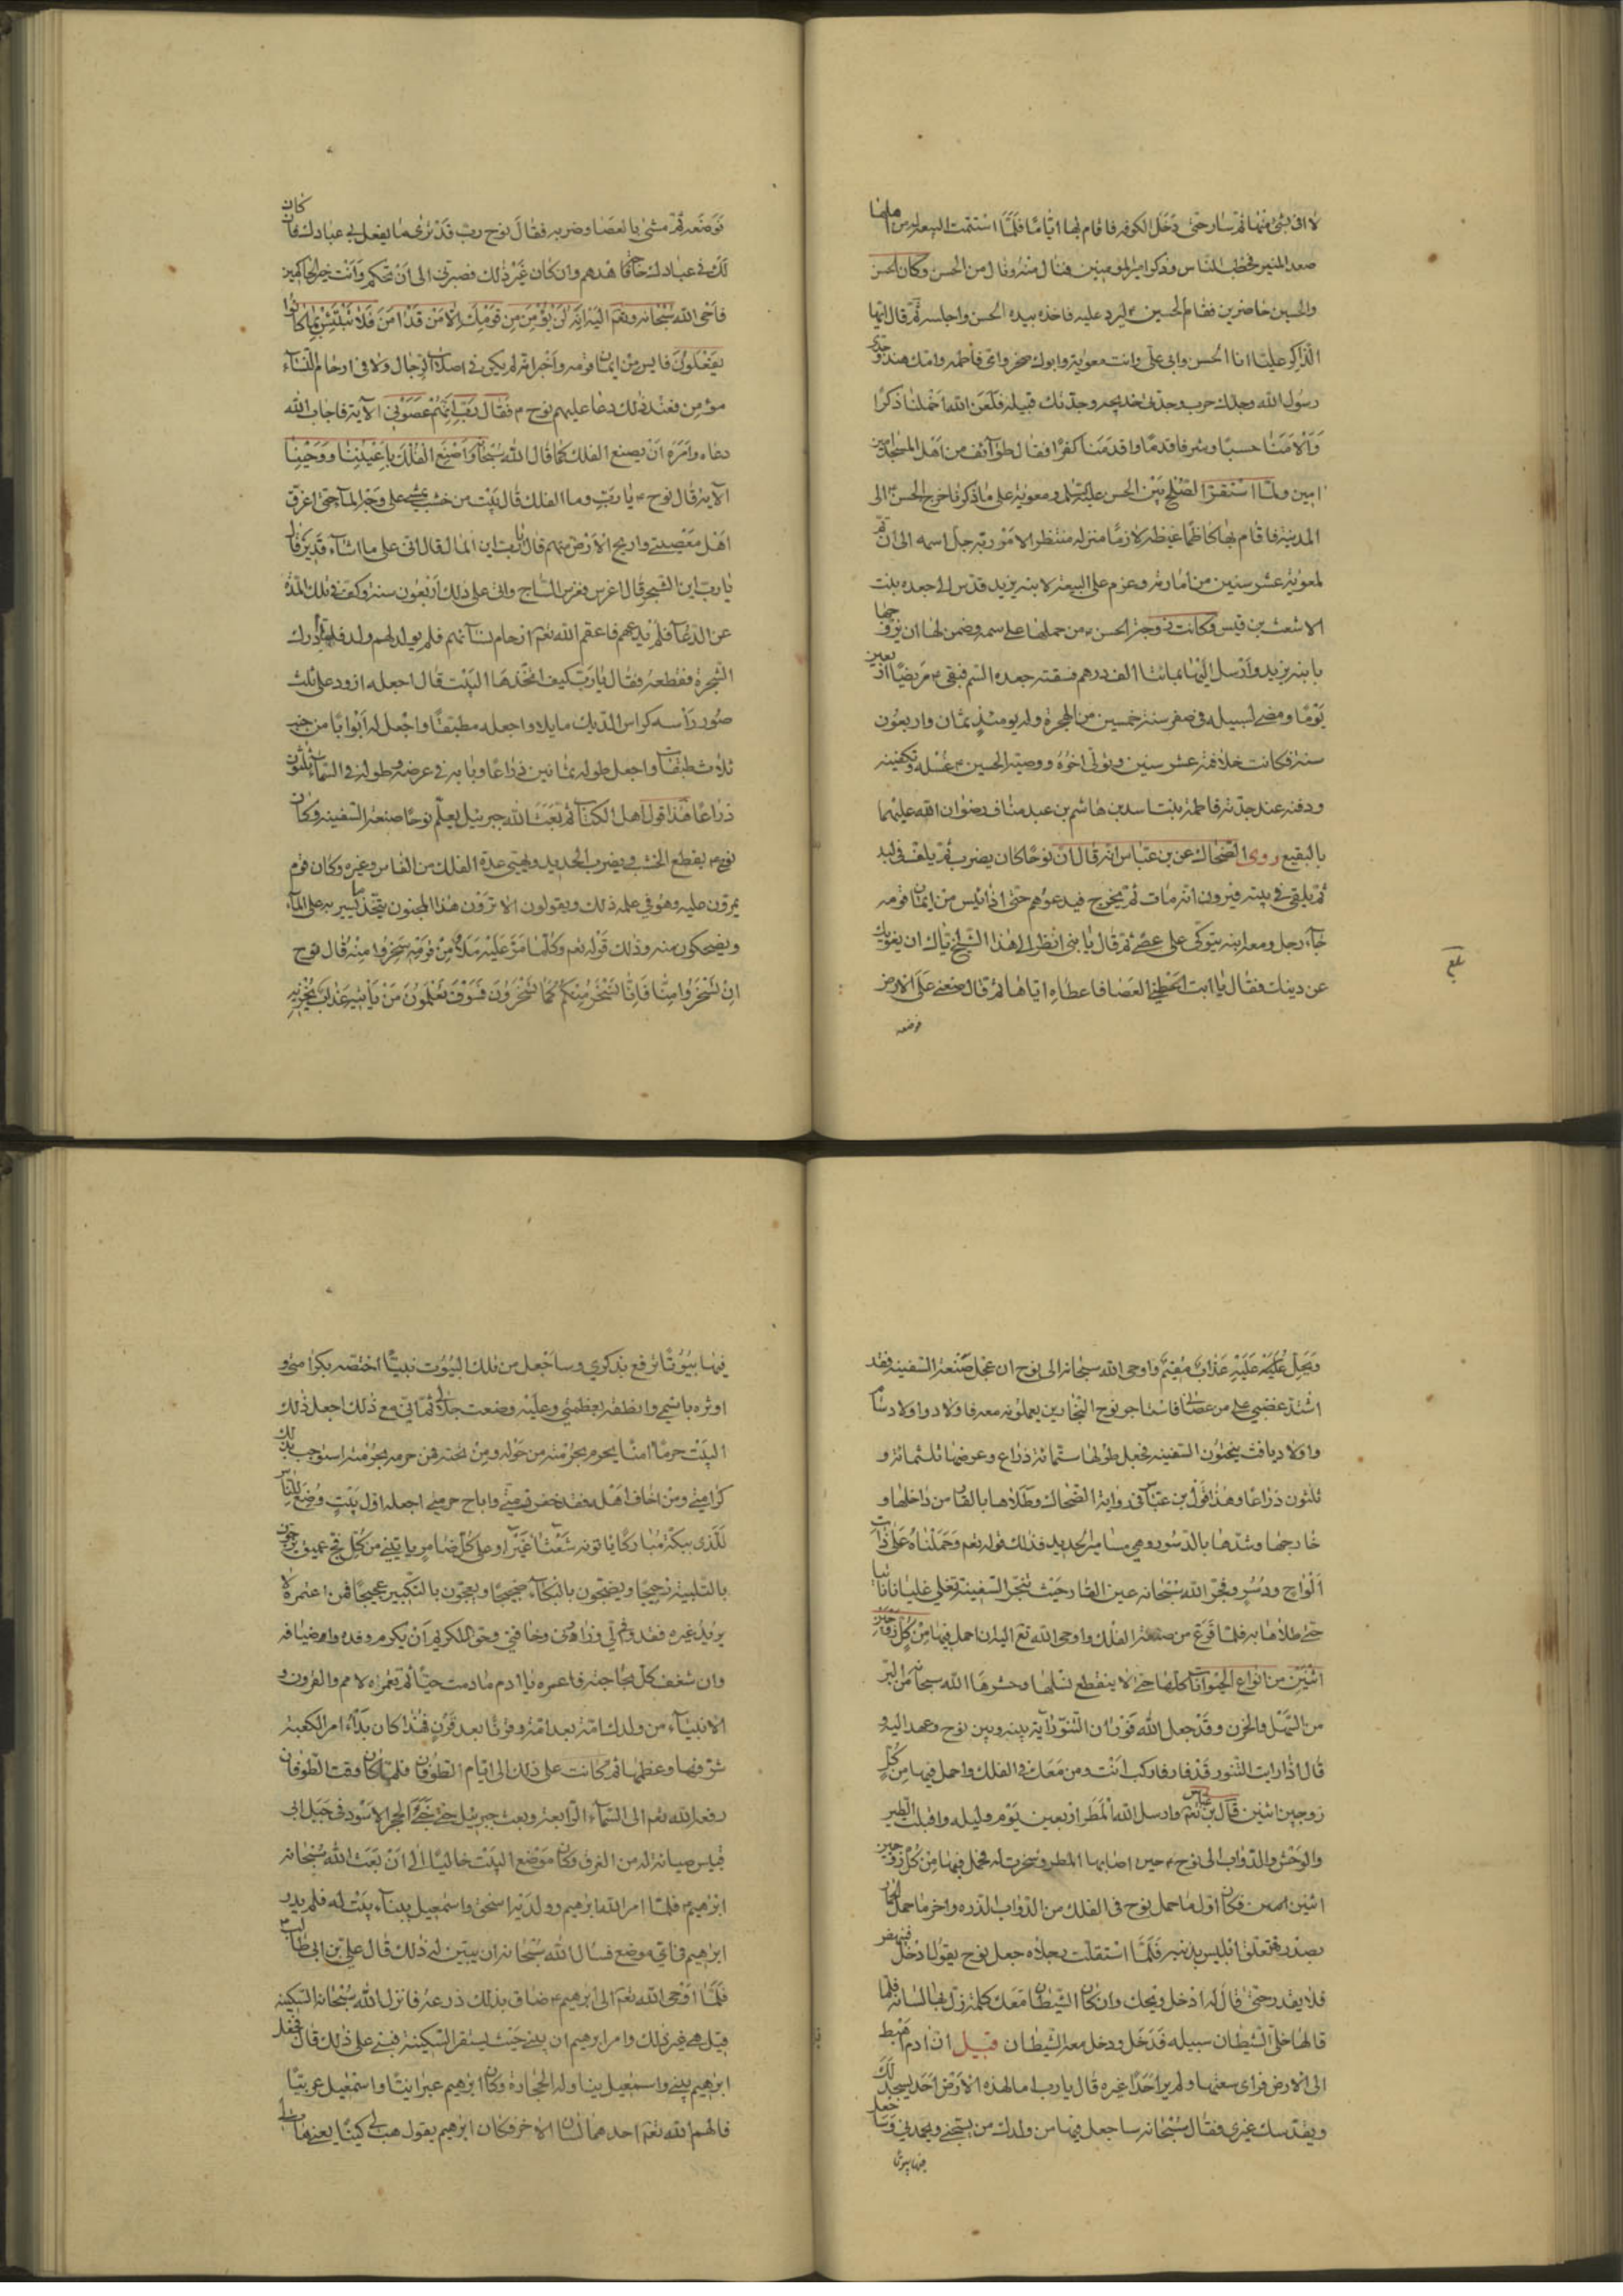 لا افى بشئ منها ثم سار حتى دخل الكوفه فاقام بها اياما فلما استتمت البيعة له من اهلها
صعد المنبر فخطب الناس وذكر امير المؤمنين فنال منه ونال من الحسن وكان الحسن
والحسين حاضرين فقام الحسين ۴ ليرد عليه فاخذه بيده الحسن واجلسه ثم قال ايها
الذاكر عليا انا الحسن وابى على وانت معوية وابوك صخر وامى فاطمه وامك هند وجدى
رسول الله وجدك حرب وجدتى خديجه وجدتك قبيله فلعن الله اخملنا ذكرا
والأمنا حسبا وشرفا قدما واقدمنا كفرا فقال طوآئف من اهل المسجد امين
امين ولما استقر الصلح بين الحسن عليه السلم ومعوية على ما ذكر فاخرج الحسن ۴ الى
المدينة فاقام بها كاظما غيظه لازما منزله منتظرا لامر ربه جل اسمه الى ان تم
لمعوية عشر سنين من امارته وعزم على البيعة لابنه يزيد فدس الى جعده بنت
الاشعث بن قيس وكانت زوجة الحسن ۴ من حملها على سمه وضمن لها ان يزوجها
بابنه يزيد وارسل اليها بمائة الف درهم فسقته جعده السم فبقى ۴ مريضا اربعين
يوما ومضى لسبيله فى صفر سنة خمسين من الهجرة وله يومئذ ثمان واربعون
سنة فكانت خلافته عشر سنين وتولى اخوه ووصيه الحسين ۴ غسله وتكفينه
ودفنه عند جدته فاطمة بنت اسد بن هاشم بن عبد مناف رضوان الله عليهما
بالبقيع روى الضحاك عن بن عباس انه قال ان نوحا كان يضرب ثم يلف فى لبد
ثم يلقى فى بيته فيرون انه مات ثم يخرج فيدعوهم حتى اذا ايس من ايمان قومه
جآء رجل ومعه ابنه يتوكى على عصى ثم قال يا بنى انظر الى هذا الشيخ اياك ان يغويك
عن دينك فقال يا ابت اعطنى العصا فاعطاه اياها ثم قال ضعنى على الارض
فوضعه
بلغ
فوضعه ثم مشى بالعصا وضربه فقال نوح رب قد ترى ما يفعل بى عبادك فان كان
لك فى عبادك حاجة فاهدهم وان كان غير ذلك فصبرنى الى ان تحكم وانت خير الحاكمين
فاوحى الله سبحانه وتعم اليه انه لن يؤمن من قومك الا من قد امن فلا تبتئس بما كانوا
يفعلون فايس من ايمان قومه واخبر انه لم يكن فى اصلاب الرجال ولا فى ارحام النسآء
مؤمن فعند ذلك دعا عليهم نوح ۴ فقال رب انهم عصونى الآية فاجاب الله
دعاه وامره ان يصنع الفلك كما قال الله سبحانه واصنع الفلك باعيننا ووحينا
الآية قال نوح ۴ يا رب وما الفلك قال بيت من خشب يمشى على وجه المآء حتى اغرق
اهل معصيتى واريح الارض منهم قال يا رب اين المآء قال انى على ما اشآء قدير قال
يا رب اين الشجر قال اغرس فغرس الساج واتى على ذلك اربعون سنه وكف فى تلك المدة
عن الدعآء فلم يدعهم فاعقم الله تعم ارحام نسآئهم فلم يولد لهم ولد فلما ادرك
الشجرة فقطعه فقال يا رب كيف اتخذ هذا البيت قال اجعله ازور على ثلث
صور رأسه كراس الديك مايلا واجعله مطبقا واجعل له ابوابا من جنبه
ثلاث طبقات واجعل طوله ثمانين ذراعا وبابه فى عرضه وطوله فى السمآء ثلثون
ذراعا هذا قول اهل الكتاب ثم بعث الله جبرئيل يعلم نوحا صنعة السفينه وكان
نوح ۴ يقطع الخشب ويضرب الحديد ويهيئ عدة الفلك من القار وغيره وكان قوم
يمرون عليه وهو فى عمله ذلك ويقولون الا ترون هذا المجنون يتخذ ما يسير به على المآء
ويضحكون منه وذلك قوله تعم وكلما مر عليه ملأ من قومه سخروا منه قال نوح
ان تسخروا منا فانا نسخر منكم كما تسخرون فسوف تعلمون من يأتيه عذاب يخزيه
ويحل عليه عذاب مقيم واوحى الله سبحانه الى نوح ان عجل صنعة السفينه فقد
اشتد غضبى على من عصانى فاستاجر نوح النجارين يعملونه معه فاولاده اولاد سام
واولاد يافث ينحتون السفينه فجعل طولها ستمائة ذراع وعرضها ثلثمائة و
ثلثون ذراعا وهذا قول بن عباس فى رواية الضحاك وطلاها بالقار من داخلها و
خارجها وشدها بالدسور وهى مسامير الحديد فذلك قوله تعم وحملناه على ذات
الواح ودسر وفجر الله سبحانه عين القار حيث تنجر السفينة تغلى غليانا
حتى طلاها به فلما فرغ من صنعة الفلك واوحى الله تعم اليه ان احمل فيها من كل زوجين
اثنين من انواع الحيوانات كلها حتى لا ينقطع نسلها وحشرها الله سبحانه من البر
من السهل والحزن وقد جعل الله فوران التنور آية بينه وبين نوح وعهد اليه و
قال اذا رايت التنور قد فار فاركب انت ومن معك فى الفلك واحمل فيها من كل
زوجين اثنين قال بن عباس وارسل الله المطر اربعين يوم وليله واقبلت الطير
والوحش والدواب الى نوح ۴ حين اصابها المطر وسخرت له فحمل فيها من كل زوجين
اثنين فكان اول ما حمل نوح فى الفلك من الدواب الذره واخر ما حمل الحمار
بصدره فتعلق ابليس بذنبه فلما استقلت رجلاه جعل نوح يقول ادخل فينهض
فلا يقدر حتى قال له ادخل ويحك وان كان الشيطان معك كلمة زل بها لسانه فلما
قالها خلى الشيطان سبيله فدخل ودخل معه الشيطان قيل ان آدم اهبط
الى الارض فراى سعتها ولم ير احدا غيره قال يا رب اما لهذه الارض احد يسجد لك
ويقدسك غيرى فقال سبحانه ساجعل فيها من ولدك من يسبحنى ويحمدنى وساجعل
فيها بيوتا
فيها بيوتا ترفع بذكرى وساجعل من تلك البيوت بيتا اختصه بكرامتى و
اوثره باسمى وانطقه بعظمتى وعليه وضعت جلالى ثم انى مع ذلك اجعل ذلك
البيت حرما آمنا يحرم بحرمته من حوله ومن تحته فمن حرمه بحرمته استوجب بذلك
كرامتى ومن اخاف اهله فقد خفر ذمتى واباح حرمتى اجعله اول بيت وضع للناس
للذى ببكة مباركا ياتونه شعثا غبرا وعلى كل ضامر ياتين من كل فج عميق يزجون
بالتلبية زجيجا ويضجون بالبكآء ضجيجا ويعجون بالتكبير عجيجا فمن اعتمره لا
يريد غيره فقد وفد لى وزارنى وضافنى وحق للكريم ان يكرم وفده واضيافه
وان يسعف كلا بحاجته فاعمره يا آدم ما دمت حيا ثم تعمره الامم والقرون و
الانبيآء من ولدك امة بعد امة وقرنا بعد قرن فهذا كان بدأ امر الكعبة
شرفها وعظمها ثم كانت على ذلك الى ايام الطوفان فلما كان وقت الطوفان
رفعه الله تعم الى السمآء الرابعة وبعث جبرئيل حتى خبأ الحجر الاسود فى جبل ابى
قبيس صيانة له من الغرق وكان موضع البيت خاليا الى ان بعث الله سبحانه
ابرهيم ۴ فلما امر الله ابرهيم وولديه اسحق واسمعيل ببنآء بيت له فلم يدر
ابرهيم فى اى موضع فسال الله سبحانه ان يبين له ذلك قال على بن ابى طالب ۴
فلما اوحى الله تعم الى ابرهيم ۴ ضاق بذلك ذرعه فانزل الله سبحانه السكينه
قيل هى غير ذلك وامر ابرهيم ان يبنى حيث تستقر السكينة فبنى على ذلك قال فجعل
ابرهيم يبنى واسمعيل يناوله الحجارة وكان ابرهيم عبرانيا واسمعيل عربيا
فالهم الله تعم احدهما لسان الاخر فكان ابرهيم يقول هب لى كيبا يعنى هات لى